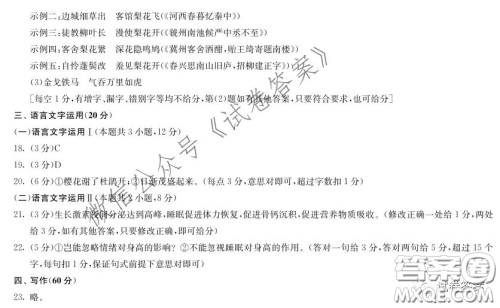 示例二：边城细草出　客馆梨花飞(《河西春暮忆秦中》)
示例三：徒教柳叶长　漫使梨花开(《虢州南池候严中丞不至》)
示例四：客舍梨花繁　深花隐鸣鸠(《冀州客舍酒酣，贻王绮寄题南楼》)
示例五：自怜蓬鬓改　羞见梨花开(《春兴思南山旧庐，招柳建正字》)
(3)金戈铁马　气吞万里如虎
[每空1分，有增写、漏字、错别字等均不给分，第(2)题如有其他答案，只要符合要求，也可给分]
三、语言文字运用(20分)
(一)语言文字运用Ⅰ(本题共3小题，12分)
18.(3分)C
19.(3分)D
20.(6分)①樱花谢了杜鹃开；②日渐茂盛起来。(每点3分，意思对即可，超过字数扣1分)
(二)语言文字运用Ⅱ(本题共2小题，8分)
21.(3分)生长激素的分泌达到高峰，睡眠促进体长，促进骨钙沉积，促进营养物质吸收。(修改正确一处给1分，两处给3分，如有其他答案，只要修改正确，即可给分)
22.(5分)①岂能忽略情绪对身高的影响？②不能忽视睡眠对身高的作用。(答对一句给3分，两句给5分，超过15个字，每句扣1分，保证句式前提下意思对即可)
四、写作(60分)
23.略。
微信公众号《试卷答案》